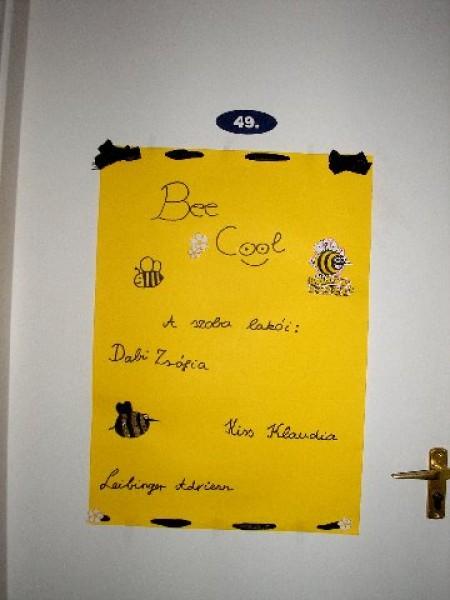 49.
Bee
Cool
A szoba lakói:
Dabi Zsófia
Kiss Klaudia
Leibinger Adrienn